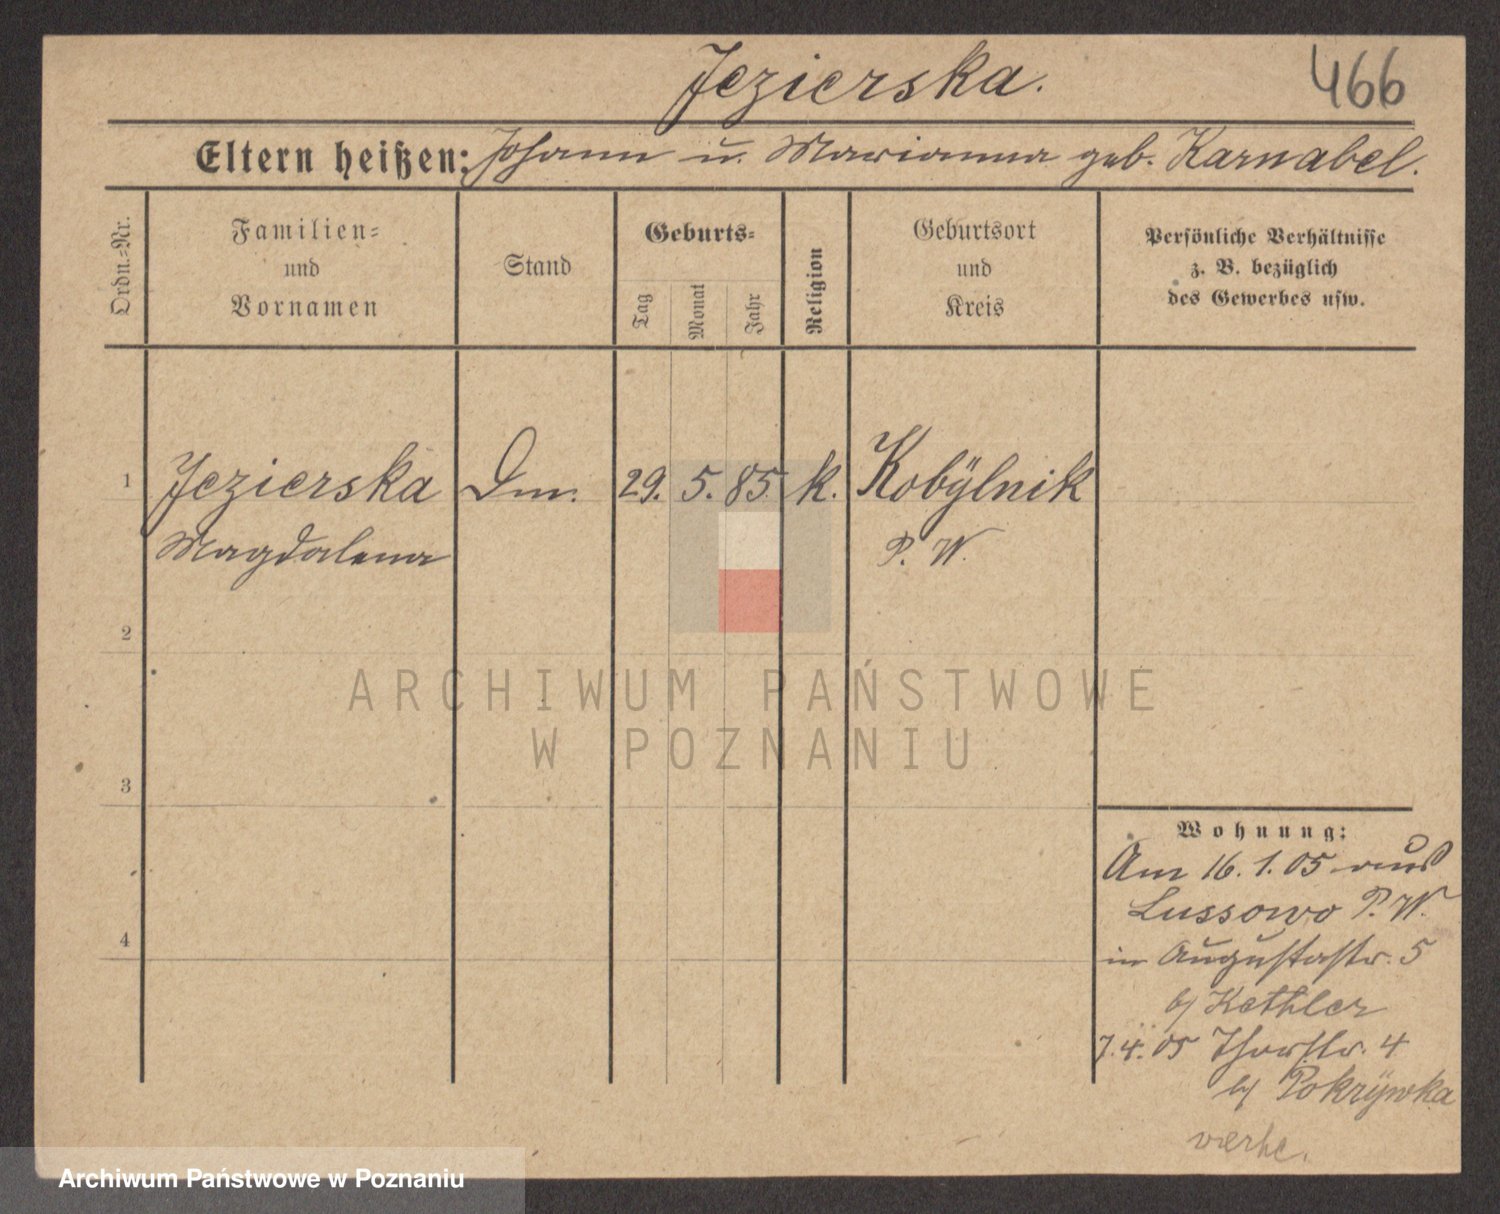 Jezierska.
466
Eltern heißen: Johann u. Marianna geb. Karnabel.
Ordn.-Nr.
Familien-
und
Vornamen
Stand
Geburts-
Tag
Monat
Jahr
Religion
Geburtsort
und
Kreis
Persönliche Verhältnisse
z. B. bezüglich
des Gewerbes usw.
1 Jezierska 29. 5. 85. k. Kobÿlnik
Magdalena P. W.
2
ARCHIWUM PAŃSTWOWE
W POZNANIU
3
Wohnung:
Am 16. 1. 05 aus
Lussowo P. W.
4
in Augustastr. 5
b/ Kethler
7. 4. 05 Thorstr. 4
b/ Pokrÿwka
Archiwum Państwowe w Poznaniu